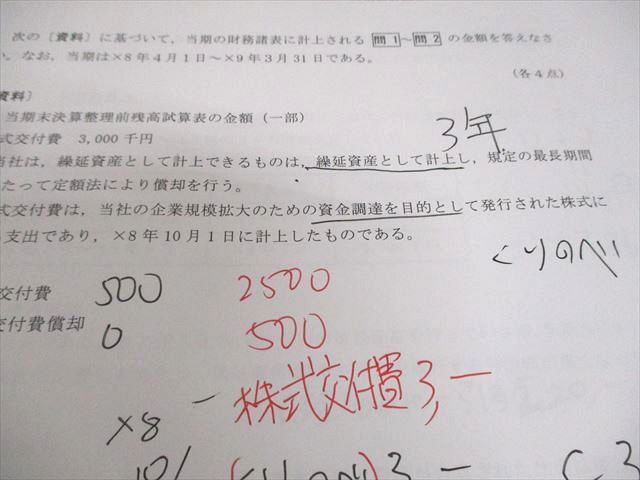 次の〔資料〕に基づいて，当期の財務諸表に計上される 問1～問2 の金額を答えなさ
い。なお，当期は×8年4月1日～×9年3月31日である。
(各4点)
資料〕
当期末決算整理前残高試算表の金額（一部）
式交付費 3,000千円
3年
当社は，繰延資産として計上できるものは，繰延資産として計上し，規定の最長期間
たって定額法により償却を行う。
式交付費は，当社の企業規模拡大のための資金調達を目的として発行された株式に
支出であり，×8年10月1日に計上したものである。
くりのべ
交付費 500 2500
交付費償却 0 500
株式交付費 3,－
×8
10/ (くりのべ) 3 － C 3